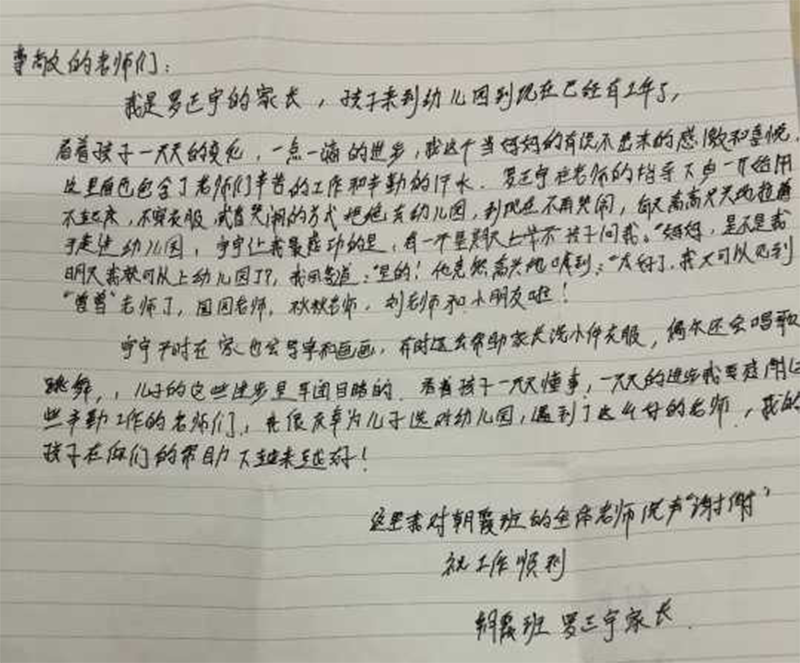 尊敬的老师们：
我是罗正宇的家长，孩子来到幼儿园到现在已经有2年了，
看着孩子一天天的变化，一点一滴的进步，我这个当妈妈的有说不出来的感激和喜悦，
这里面包含了老师们辛苦的工作和辛勤的汗水．罗正宇在老师的指导下由一开始用
不起床，不穿衣服，或者哭闹的方式拒绝去幼儿园，到现在不再哭闹，每天高高兴兴地拉着
手走进幼儿园，宇宇让我最感动的是，有一个星期天上午孩子问我。"妈妈，是不是我
明天我就可以上幼儿园了？，我回答道："是的！他竟然高兴地喊到："太好了，我又可以见到
"曾曾"老师了，园园老师，秋秋老师，刘老师和小朋友啦！
宇宇平时在家也会写字和画画，有时还会帮助家长洗小件衣服，偶尔还会唱歌
跳舞，，儿子的这些进步是有目共睹的．看着孩子一天天懂事，一天天的进步我要感谢这
些辛勤工作的老师们，我很庆幸为儿子选对幼儿园，遇到了这么好的老师，我的
孩子在你们的帮助下越来越好！
这里我对朝霞班的全体老师说声"谢谢"
祝工作顺利
朝霞班 罗正宇家长．